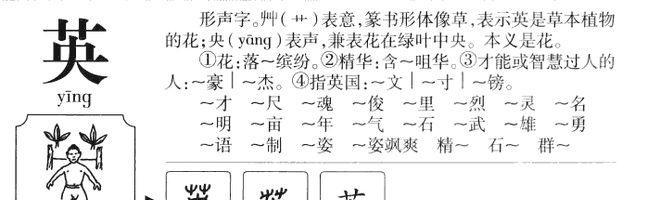 英
yīng
形声字。艸(艹)表意,篆书形体像草,表示英是草本植物
的花;央(yāng)表声,兼表花在绿叶中央。本义是花。
①花:落~缤纷。②精华:含~咀华。③才能或智慧过人的
人:~豪|~杰。④指英国:~文|~寸|~镑。
~才 ~尺 ~魂 ~俊 ~里 ~烈 ~灵 ~名
~明 ~亩 ~年 ~气 ~石 ~武 ~雄 ~勇
~语 ~制 ~姿 ~姿飒爽 精~ 石~ 群~